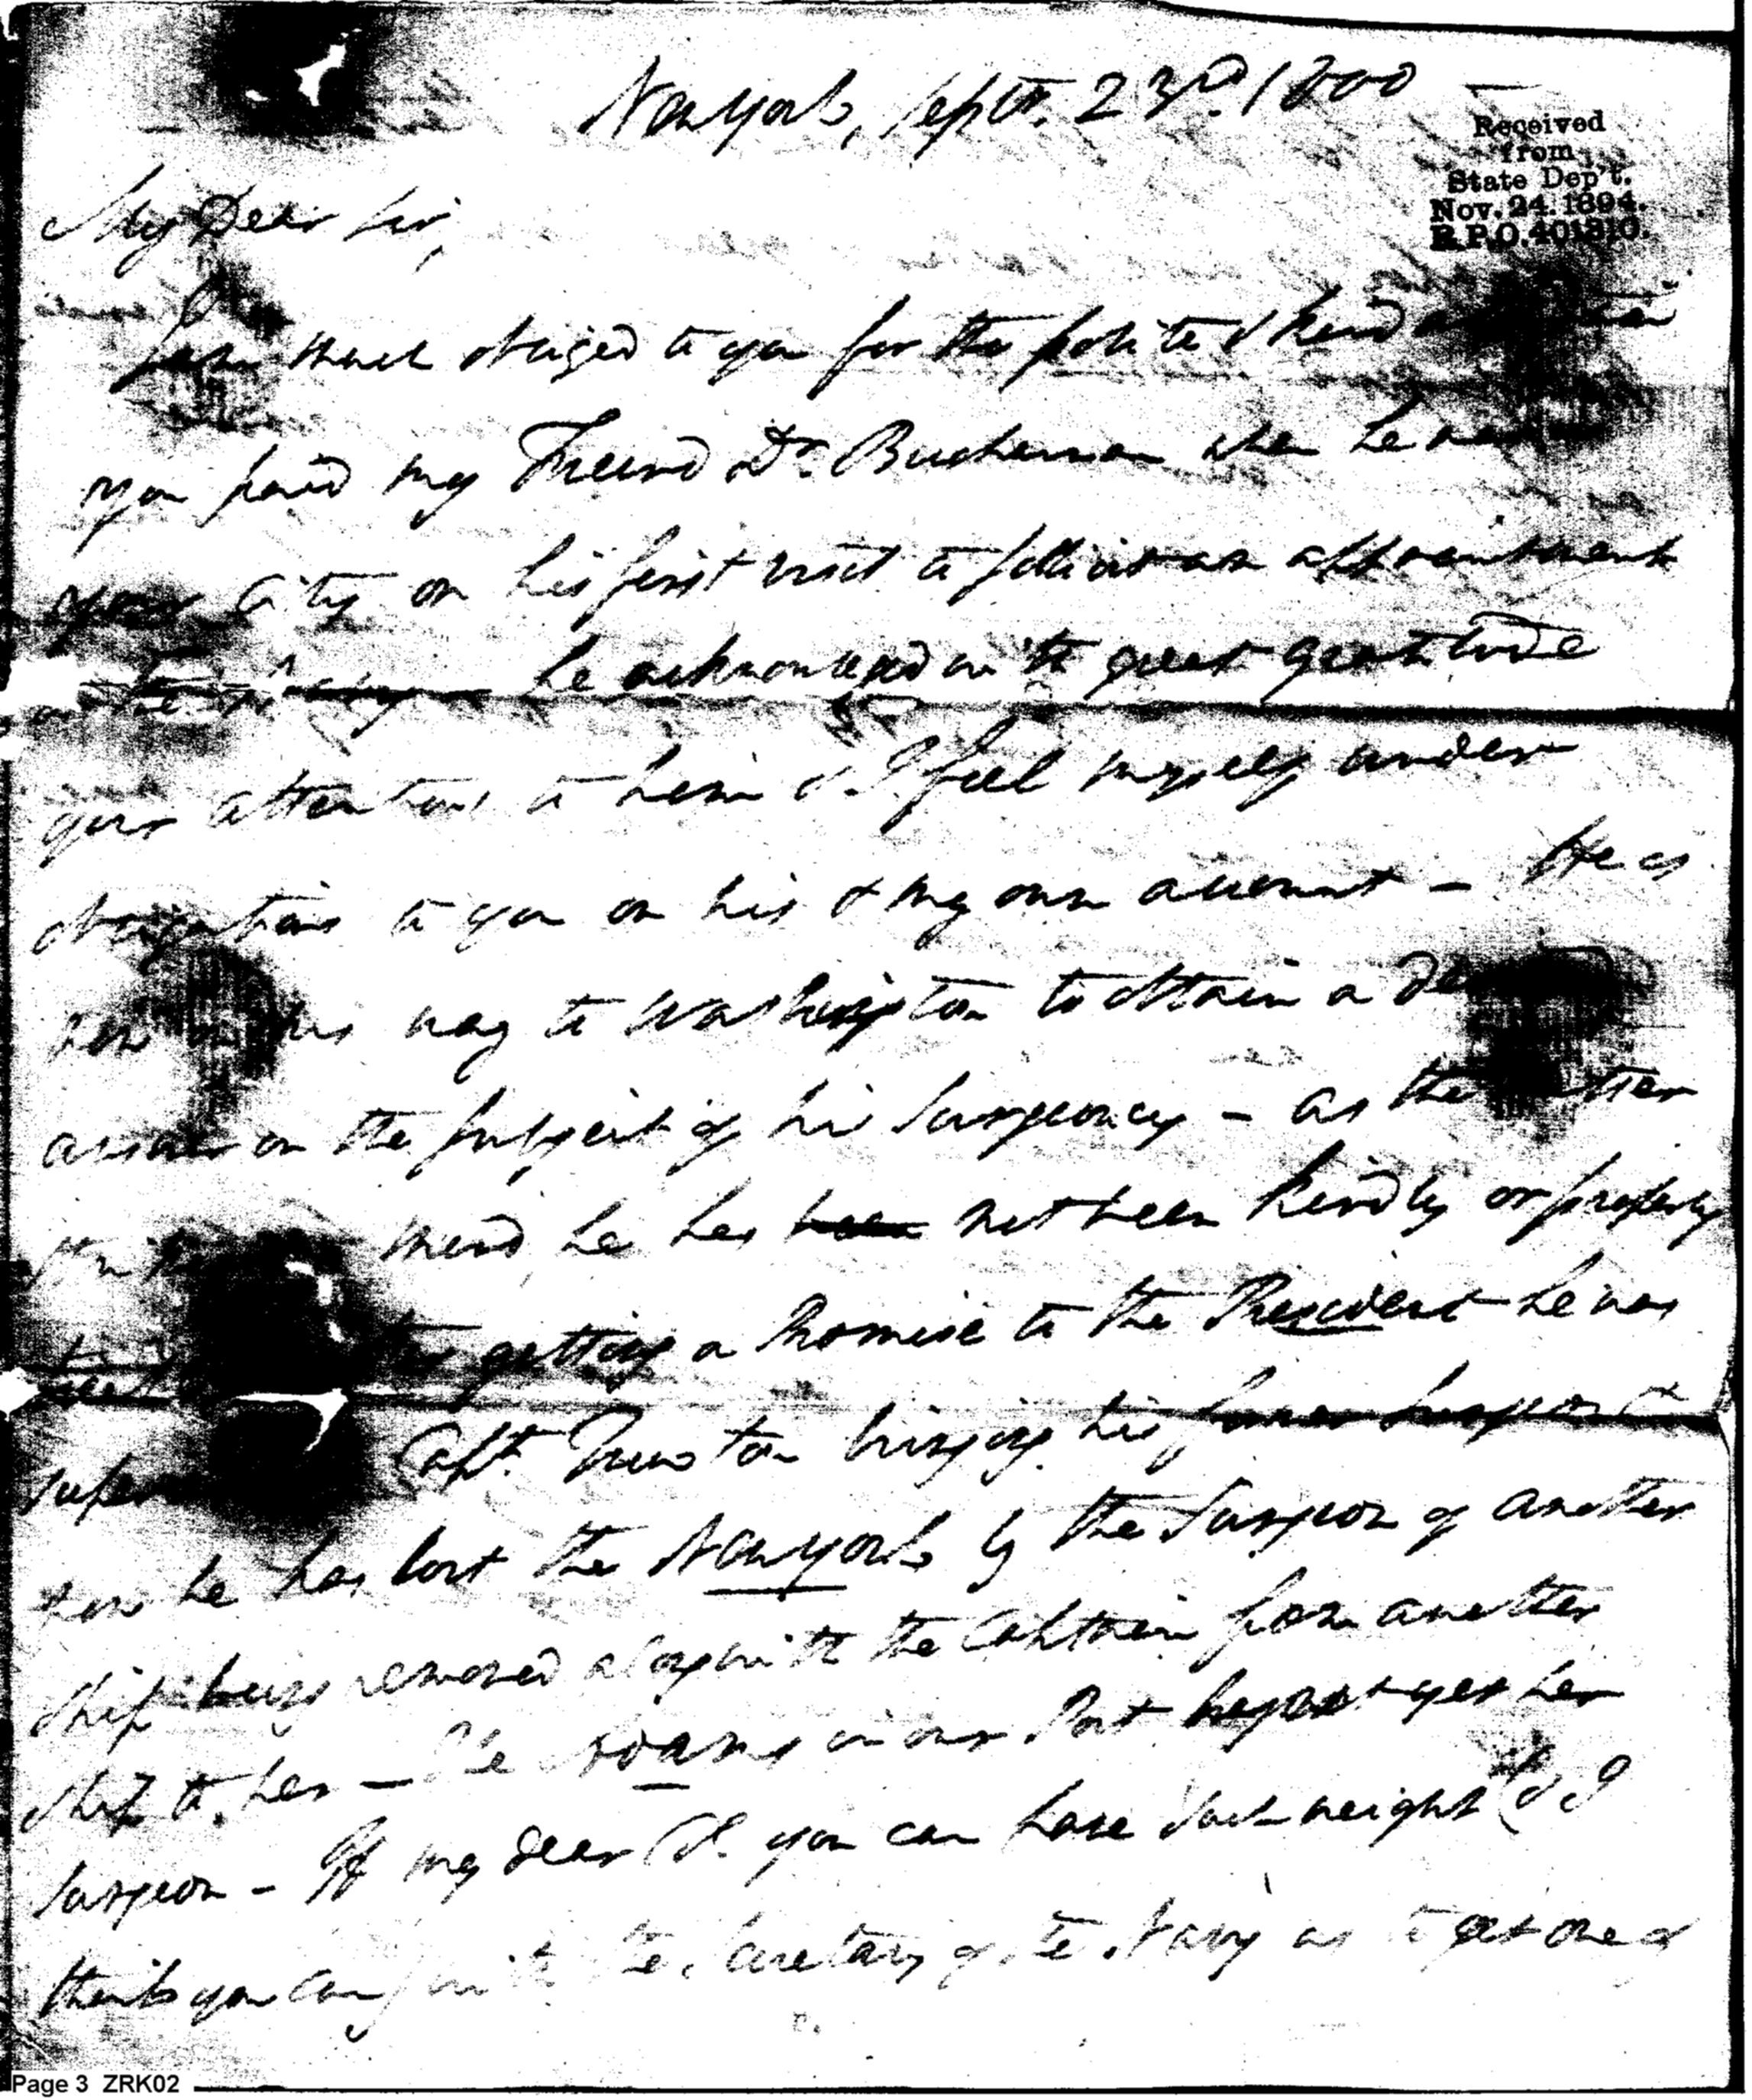 New York, Septr. 23rd. 1800
Received
from
State Dep't.
Nov. 24. 1894.
R.P.O. 401310.
My Dear Sir,
I am much obliged to you for the polite & kind
you paid my Friend Dr. Buchanan when he was
your City on his first visit to sollicit an appointment
he acknowleged with great gratitude
your attentions to him & I feel myself under
obligations to you on his & my own account - He is
now on his way to Washington to obtain a
answer on the subject of his Surgeoncy - as the matter
mind he has been not been kindly or properly
getting a Promise to the President he was
Capt. Truxton bringing his former Surgeon &
now he has lost the New York by the Surgeon of another
ship being removed along with the Captain from another
ship to her - The Adams in our Port has not yet her
Surgeon - If my dear Sr. you can have such weight (& I
think you can) with the Secretary of the Navy as to get one of
Page 3 ZRK02